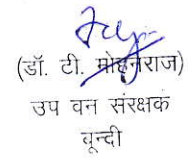 (डॉ. टी. मोहनराज)
उप वन संरक्षक
वून्दी